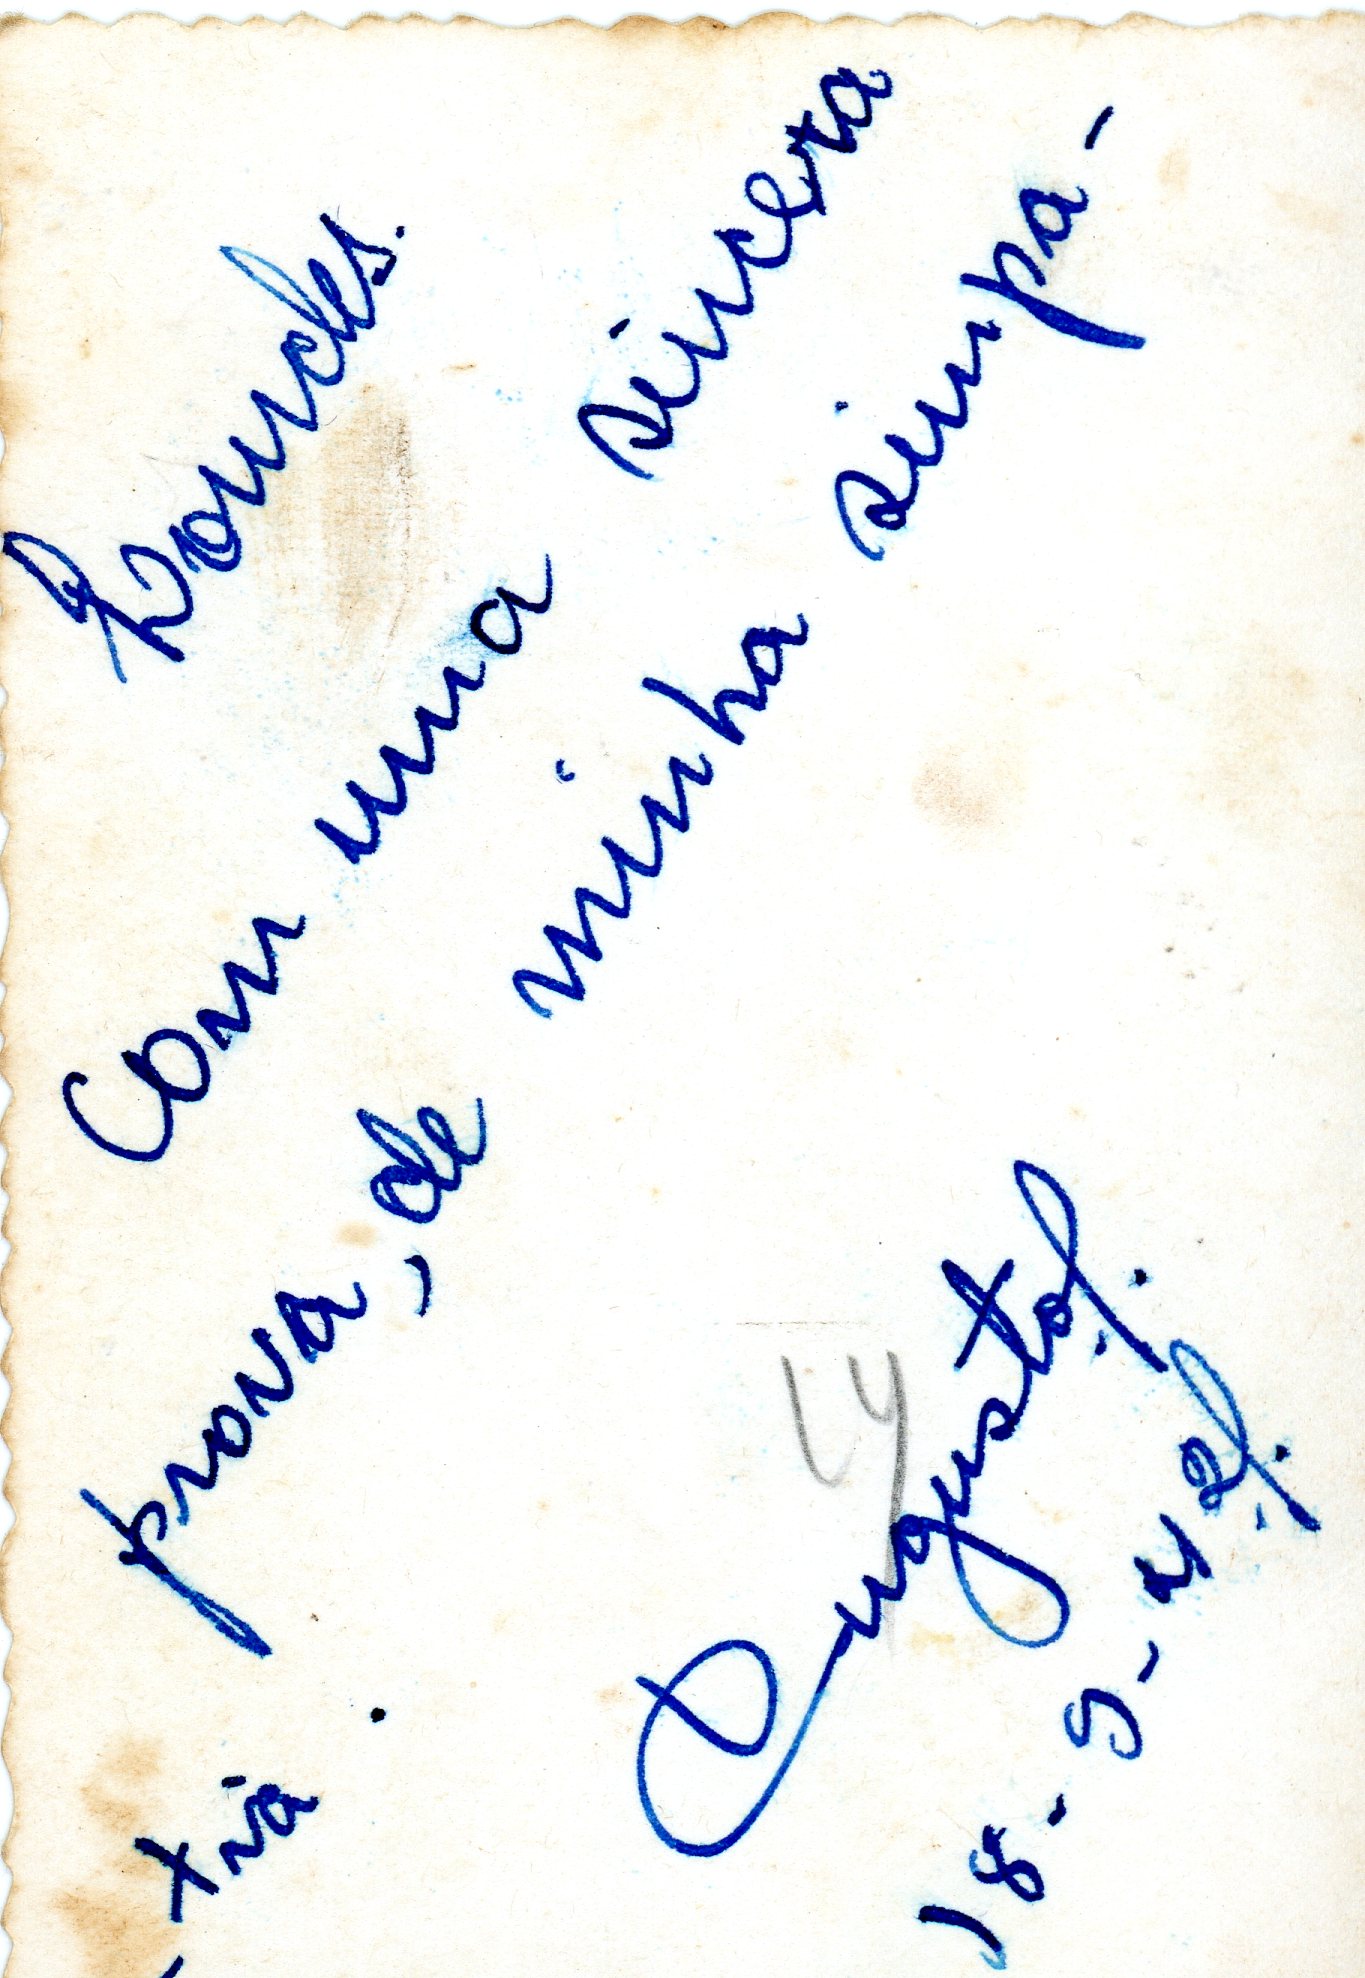 Lourdes.
Com uma sincera
prova, de minha simpa-
tia.
Augusto.
18-9-42.
14